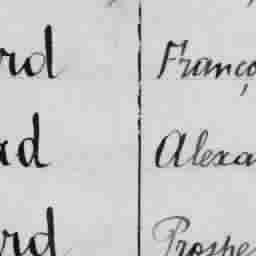 rd Franço
ad Alexa
rd Prospe